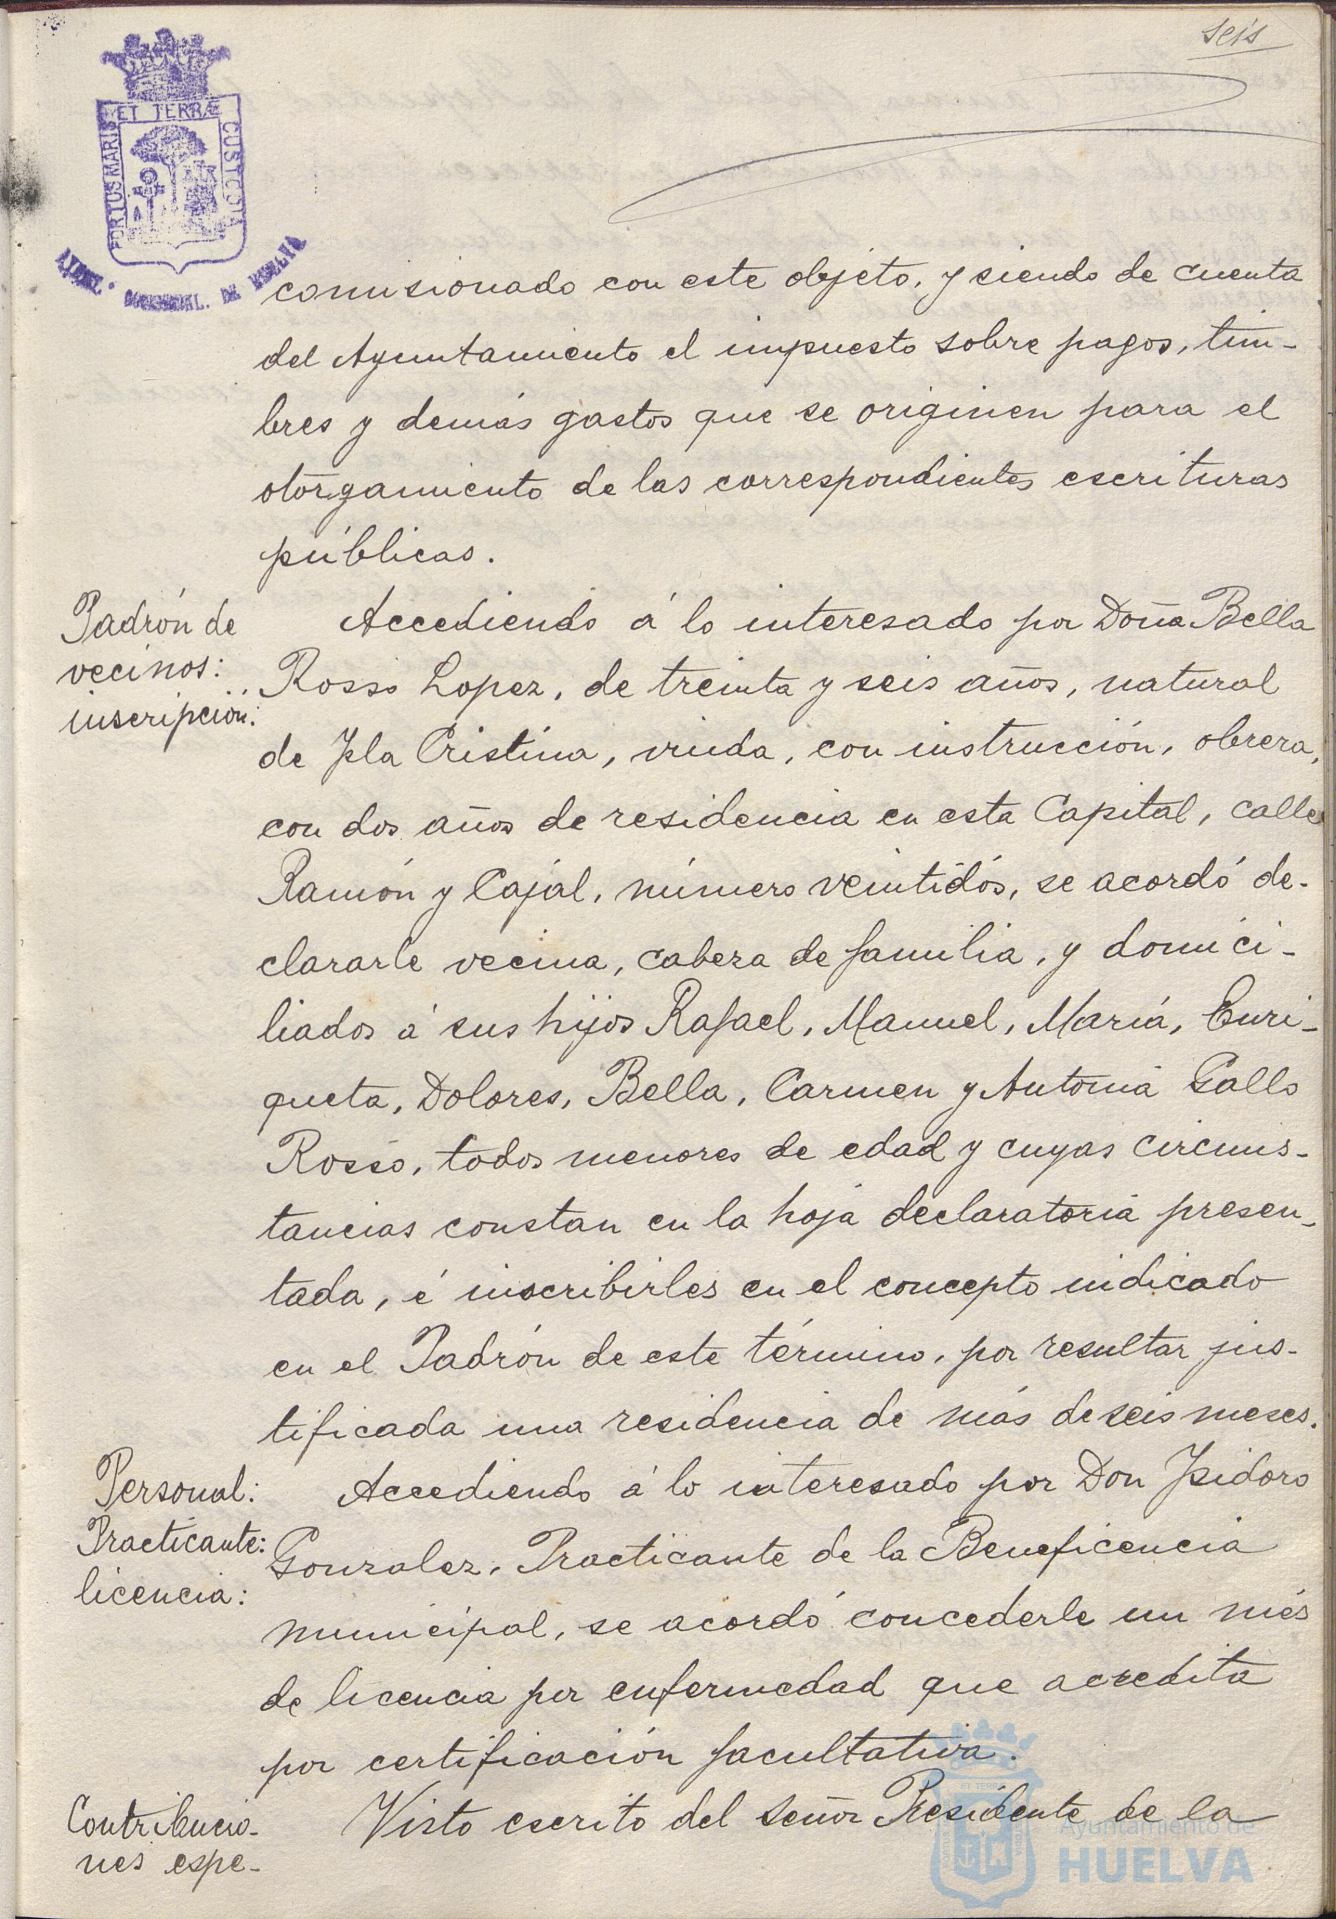 seis
PORTUS MARIS ET TERRÆ CUSTODIA
DE HUELVA
comisionado con este objeto, y siendo de cuenta
del Ayuntamiento el impuesto sobre pagos, tim-
bres y demás gastos que se originen para el
otorgamiento de las correspondientes escrituras
públicas.
Padrón de
vecinos:
inscripción:
Accediendo á lo interesado por Doña Bella
Rosso Lopez, de treinta y seis años, natural
de Isla Cristina, viuda, con instrucción, obrera,
con dos años de residencia en esta Capital, calle
Ramón y Cajal, número veintidós, se acordó de-
clararle vecina, cabeza de familia, y domici-
liados á sus hijos Rafael, Manuel, María, Enri-
queta, Dolores, Bella, Carmen y Antonia Gallo
Rosso, todos menores de edad y cuyas circuns-
tancias constan en la hoja declaratoria presen-
tada, é inscribirles en el concepto indicado
en el Padrón de este término, por resultar jus-
tificada una residencia de más de seis meses.
Personal:
Practicante:
licencia:
Accediendo á lo interesado por Don Isidoro
Gonzalez, Practicante de la Beneficencia
municipal, se acordó concederle un més
de licencia por enfermedad que acredita
por certificación facultativa.
Contribucio-
nes espe-
Visto escrito del Señor Presidente de la
Ayuntamiento de
HUELVA